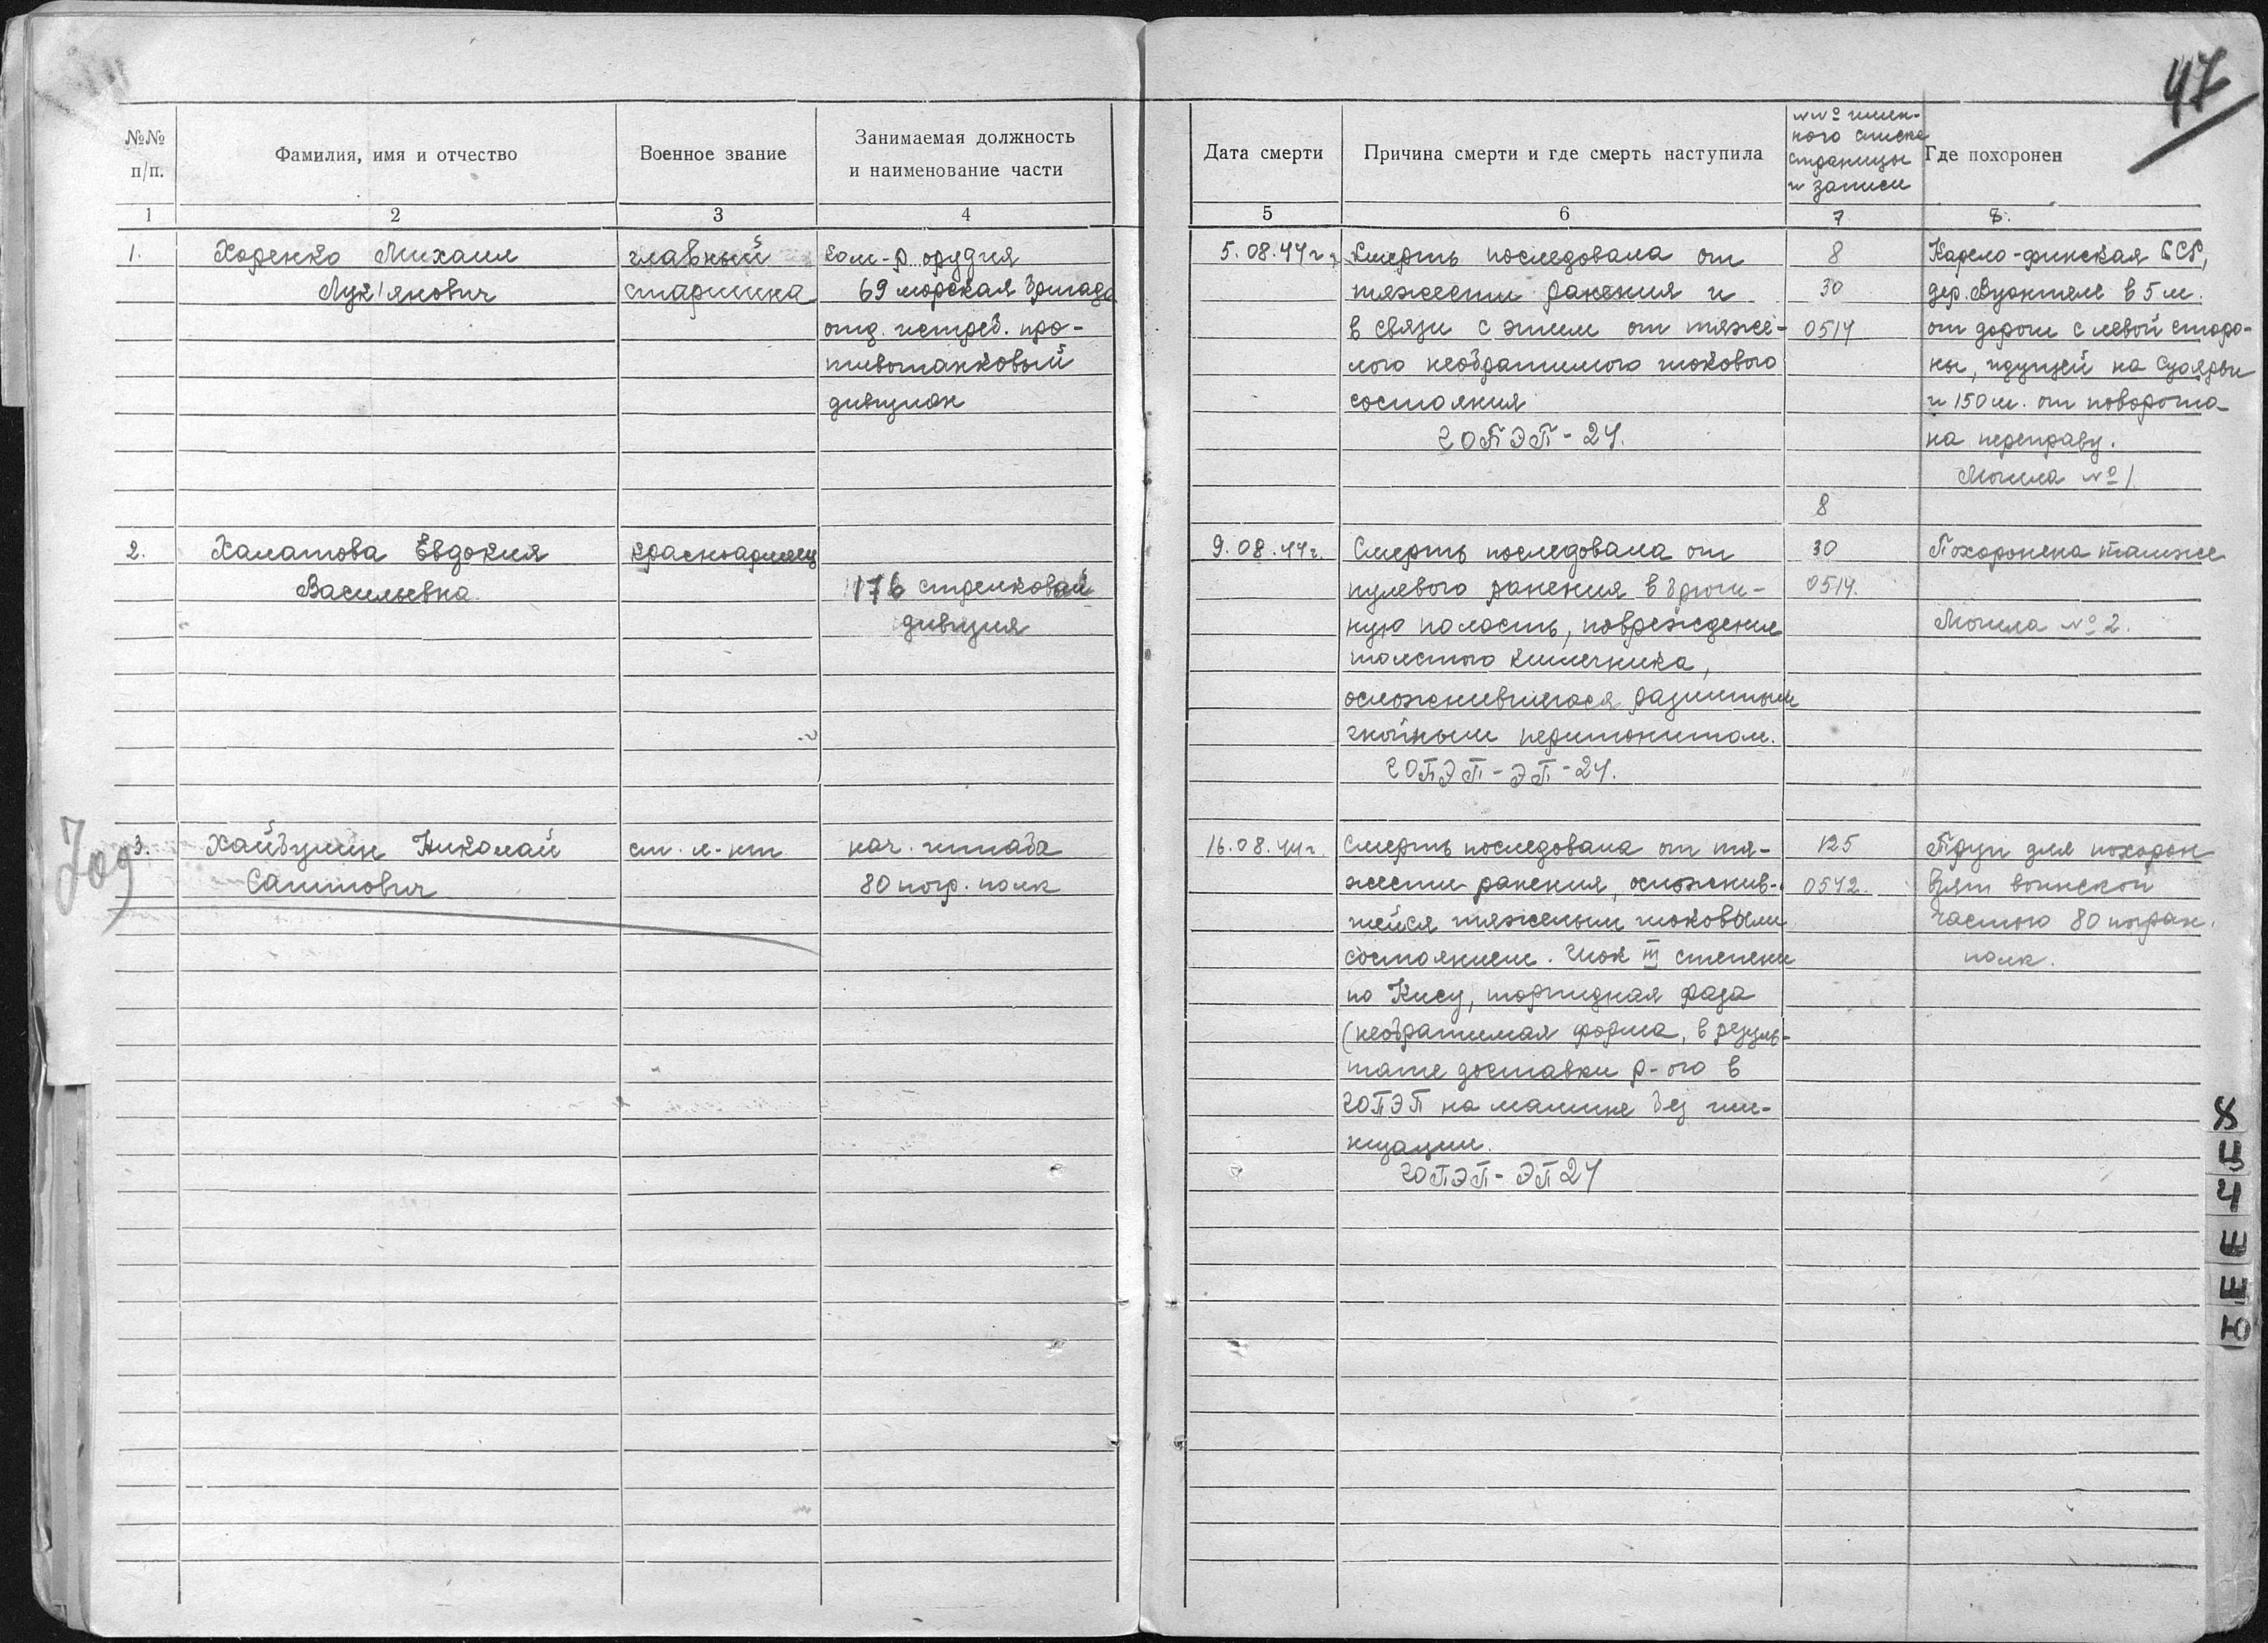 47
№№ п/п.
Фамилия, имя и отчество
Военное звание
Занимаемая должность
и наименование части
Дата смерти
Причина смерти и где смерть наступила
№№ имен-
ного списка
страницы
и записи
Где похоронен
1 2 3 4 5 6 7 8.
1.
Хоренко Михаил
Лук'янович
главный
старшина
ком-р орудия
69 морская бригада
отд. истреб. про-
тивотанковый
дивизион
5.08.44г.
Смерть последовала от
тяжести ранения и
в связи с этим от тяже-
лого необратимого шокового
состояния
ГОПЭП-24.
8
30
0514
Карело-финская ССР,
дер. Вуонтеле в 5 м.
от дороги с левой сторо-
ны, идущей на Суоярви
и 150 м. от поворота
на переправу.
Могила №1
2.
Халатова Евдокия
Васильевна
красноармеец
176 стрелковая
дивизия
9.08.44г.
Смерть последовала от
пулевого ранения в брюш-
ную полость, повреждения
толстого кишечника,
осложнившегося разлитым
гнойным перитонитом.
ГОПЭП-ЭП-24.
8
30
0514.
Похоронена там же
Могила №2.
709
3.
Хайбулин Николай
Саитович
ст. л-нт
нач. штаба
80 погр. полк
16.08.44г.
Смерть последовала от тя-
жести ранения, осложнив-
шейся тяжелым шоковым
состоянием. Шок III степени
по Кису, торпидная фаза
(необратимая форма, в резуль-
тате доставки р-ого в
ГОПЭП на машине без им-
низации.
ГОПЭП-ЭП24
125
0542.
Труп для похорон
взят воинской
частью 80 погран.
полк.
Х
Ц
Ч
Ш
Щ
Ю